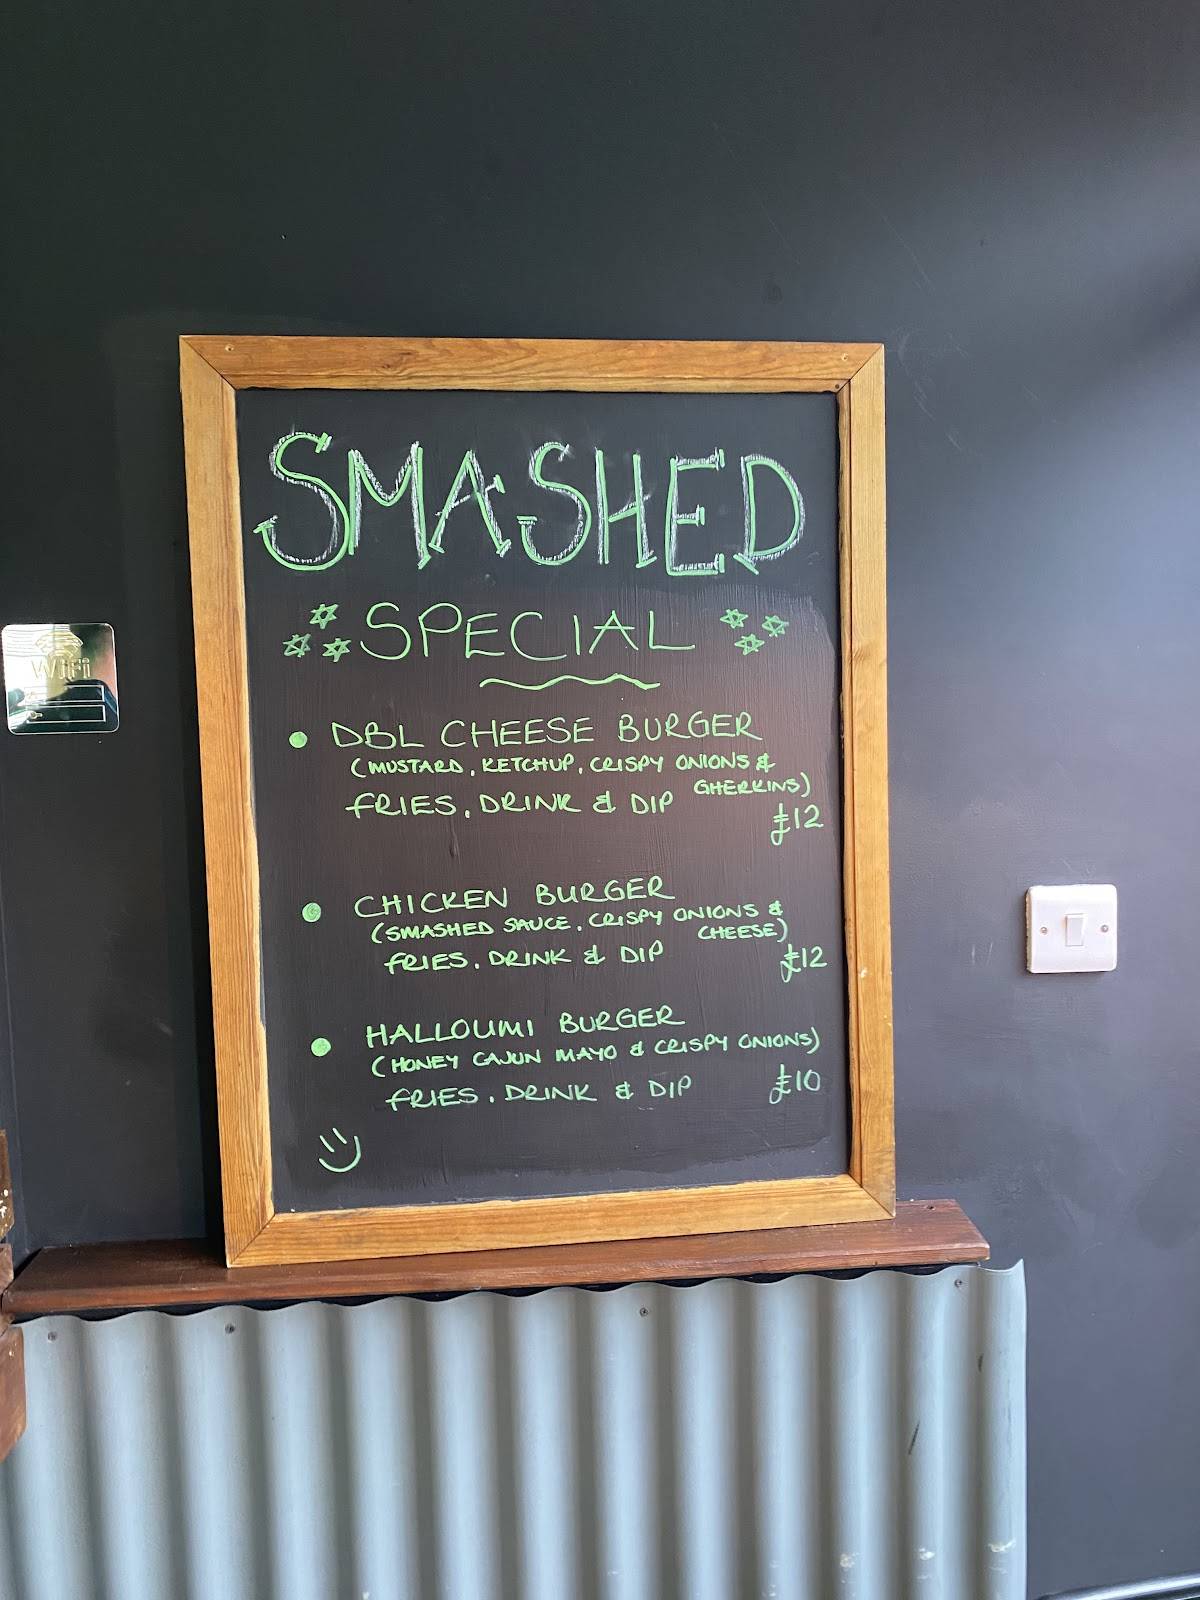 SMASHED
SPECIAL
DBL CHEESE BURGER
(MUSTARD, KETCHUP, CRISPY ONIONS &
GHERKINS)
FRIES, DRINK & DIP
£12
CHICKEN BURGER
(SMASHED SAUCE, CRISPY ONIONS &
CHEESE)
FRIES, DRINK & DIP
£12
HALLOUMI BURGER
(HONEY CAJUN MAYO & CRISPY ONIONS)
FRIES, DRINK & DIP £10
WiFi